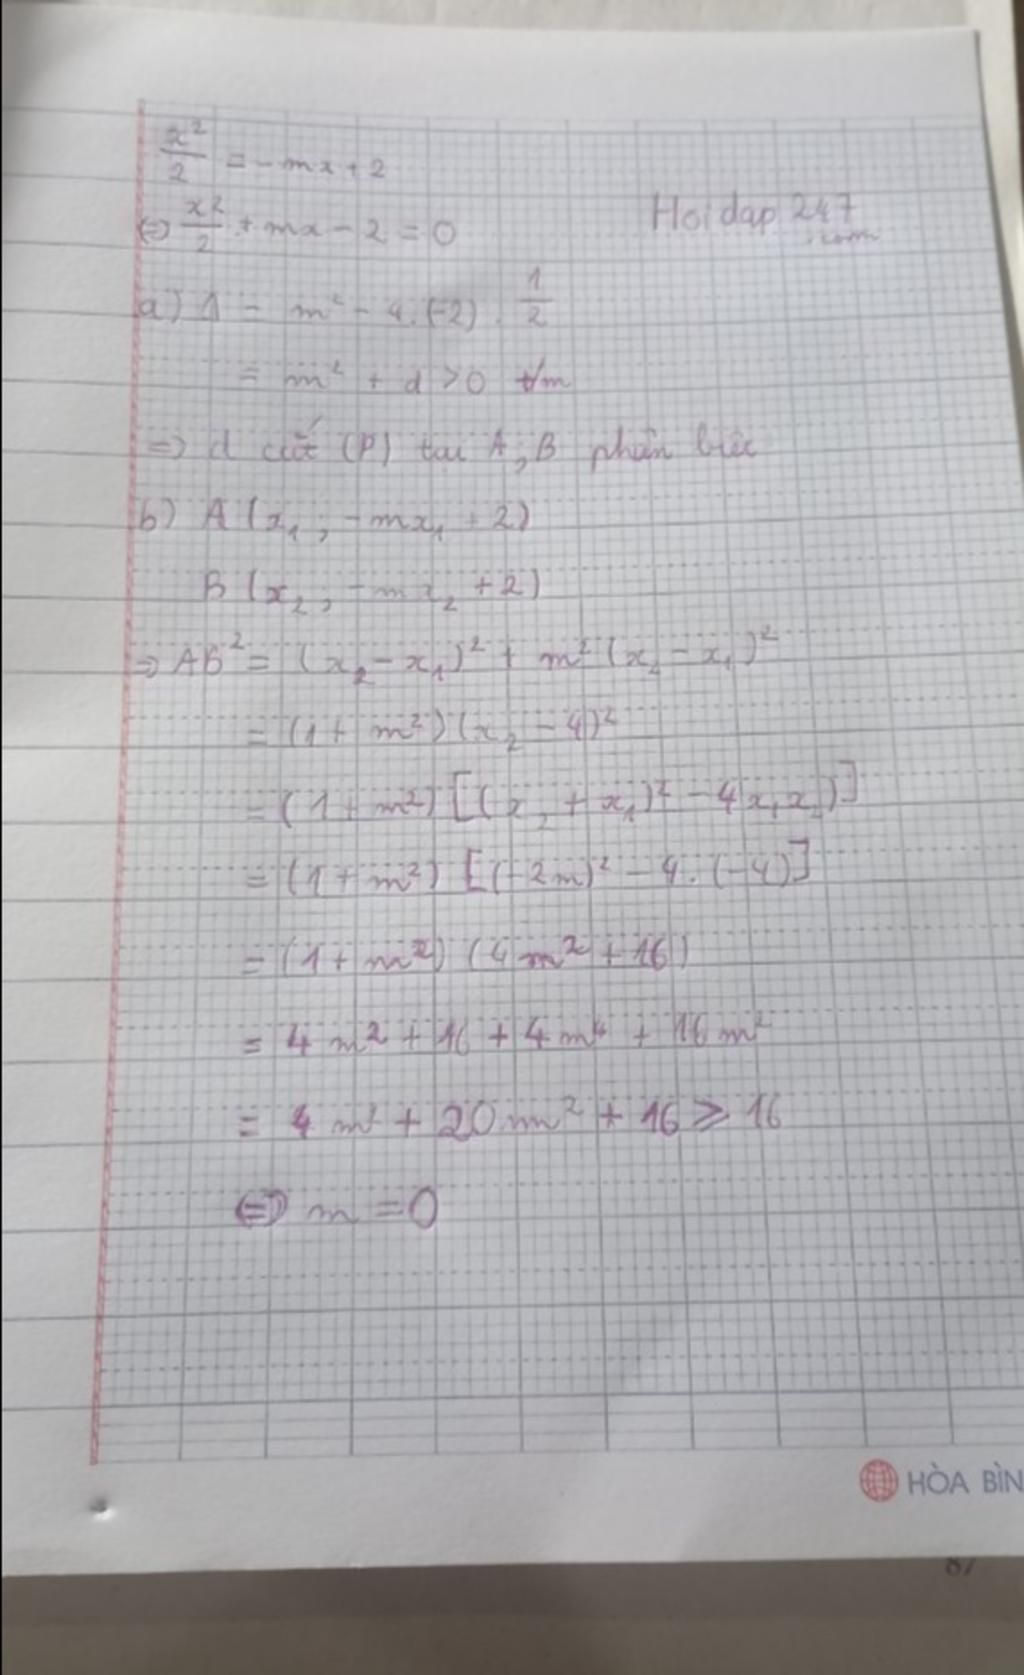 x²/2 = - mx + 2
⇔ x²/2 + mx - 2 = 0
Hoidap 247
.com
a) Δ = m² - 4.(-2). 1/2
= m² + d > 0 ∀m
=> d cắt (P) tại A, B phân biệt
b) A (x₁, -mx₁ + 2)
B (x₂, -mx₂ + 2)
=> AB² = (x₂ - x₁)² + m² (x₂ - x₁)²
= (1 + m²) (x₂ - 4)²
= (1 + m²) [(x₂ + x₁)² - 4(x₁x₂)]
= (1 + m²) [(-2m)² - 4.(-4)]
= (1 + m²) (4m² + 16)
= 4m² + 16 + 4m⁴ + 16m²
= 4m⁴ + 20m² + 16 ≥ 16
⇔ m = 0
HÒA BÌN
87